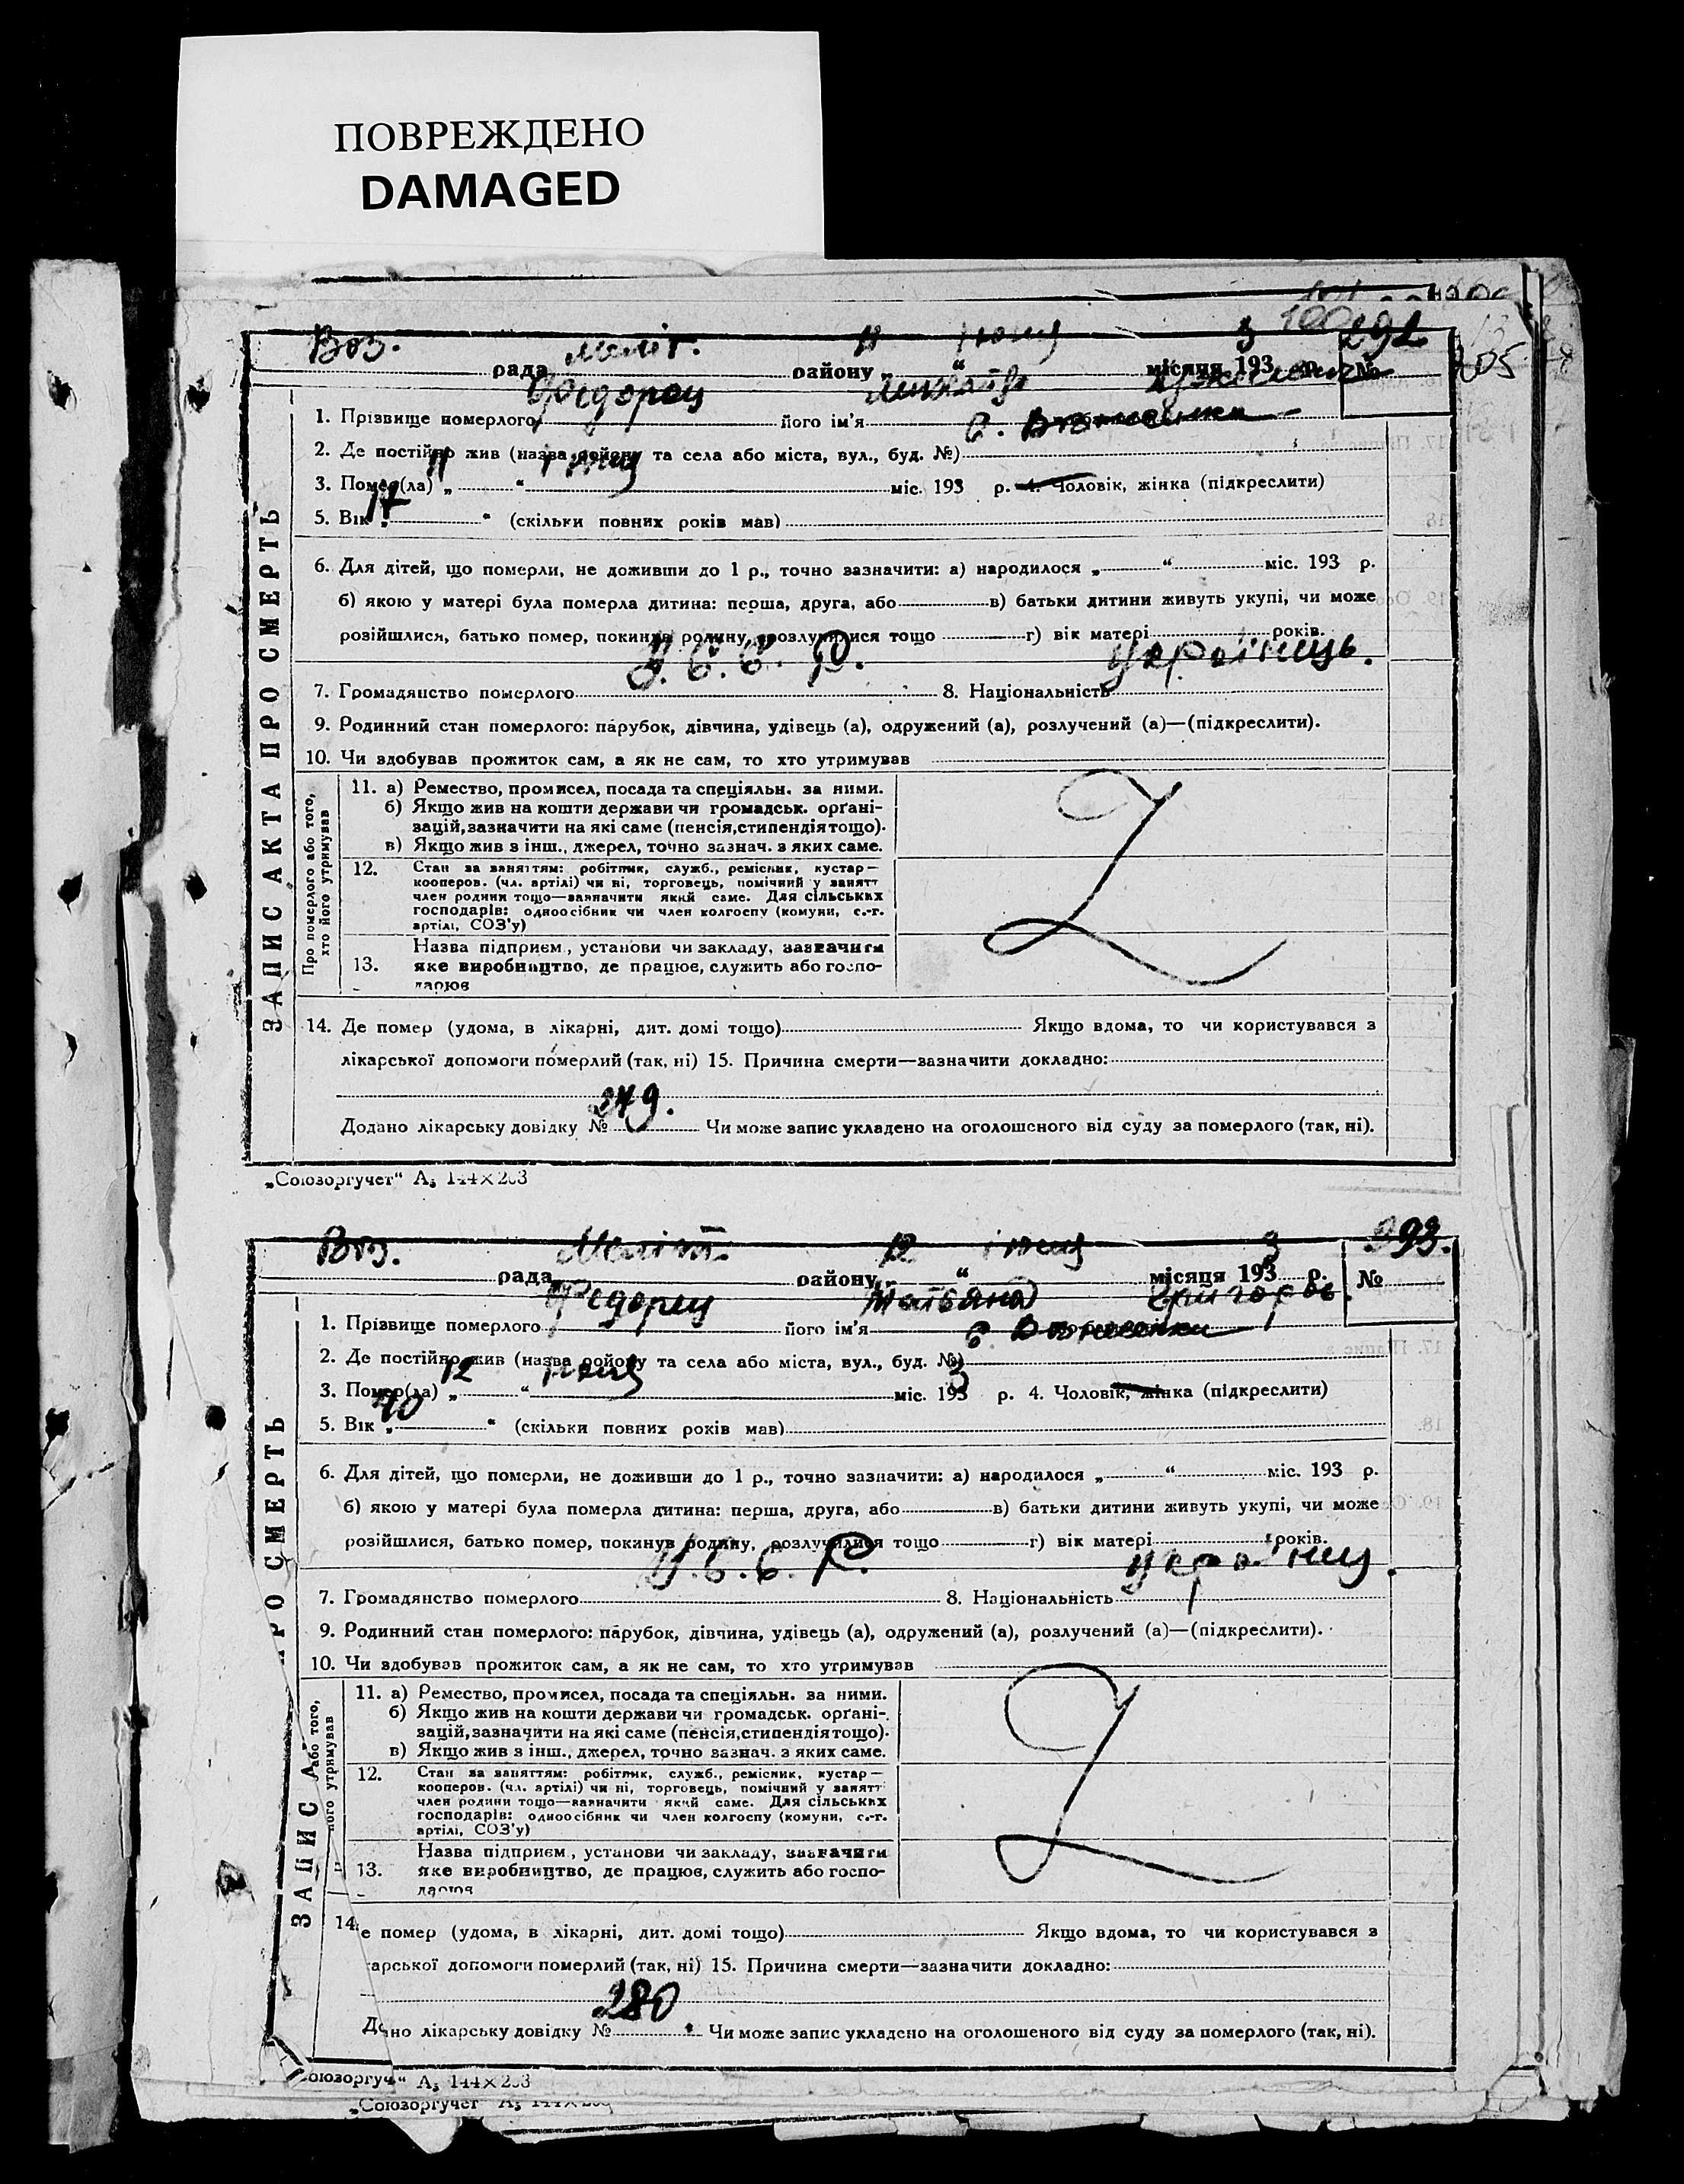 ПОВРЕЖДЕНО
DAMAGED
Воз. Меліт. 11 іюня 3 292.
рада району „ “ місяця 193 р. №
205
Федорец
1. Прізвище померлого його ім'я
с.
2. Де постійно жив (назва району та села або міста, вул., буд. №)
11 іюня
3. Помер(ла) „ “ міс. 193 р. 4. Чоловік, жінка (підкреслити)
17
5. Вік „ “ (скільки повних років мав)
6. Для дітей, що померли, не доживши до 1 р., точно зазначити: а) народилося „ “ міс. 193 р.
б) якою у матері була померла дитина: перша, друга, або в) батьки дитини живуть укупі, чи може
розійшлися, батько помер, покинув родину, розлучилися тощо г) вік матері років.
У. С. С. Р. Українець.
7. Громадянство померлого 8. Національність
9. Родинний стан померлого: парубок, дівчина, удівець (а), одружений (а), розлучений (а)—(підкреслити).
10. Чи здобував прожиток сам, а як не сам, то хто утримував
ЗАПИС АКТА ПРО СМЕРТЬ
Про померлого або того,
хто його утримував
11. а) Ремество, промисел, посада та спеціяльн. за ними.
б) Якщо жив на кошти держави чи громадськ. орґані-
зацій, зазначити на які саме (пенсія, стипендія тощо).
в) Якщо жив з інш., джерел, точно зазнач. з яких саме.
12. Стан за заняттям: робітник, служб., ремісник, кустар—
кооперов. (чл. артілі) чи ні, торговець, помічний у занятт
член родини тощо—зазначити який саме. Для сільських
господарів: одноосібник чи член колгоспу (комуни, с.-г.
артілі, СОЗ'у)
Назва підприєм, установи чи закладу, зазначити
13. яке виробництво, де працює, служить або госпо-
дарює
14. Де помер (удома, в лікарні, дит. домі тощо) Якщо вдома, то чи користувався з
лікарської допомоги померлий (так, ні) 15. Причина смерти—зазначити докладно:
279.
Додано лікарську довідку № Чи може запис укладено на оголошеного від суду за померлого (так, ні).
„Союзоргучет“ А5 144×203
Воз. Меліт. 12 іюня 3 293.
рада району „ “ місяця 193 р. №
Федорец Татьяна Григоров.
1. Прізвище померлого його ім'я
с. Вознесенки
2. Де постійно жив (назва району та села або міста, вул., буд. №)
12 іюня 3
3. Помер(ла) „ “ міс. 193 р. 4. Чоловік, жінка (підкреслити)
40
5. Вік „ “ (скільки повних років мав)
6. Для дітей, що померли, не доживши до 1 р., точно зазначити: а) народилося „ “ міс. 193 р.
б) якою у матері була померла дитина: перша, друга, або в) батьки дитини живуть укупі, чи може
розійшлися, батько помер, покинув родину, розлучилися тощо г) вік матері років.
У. С. С. Р.
7. Громадянство померлого 8. Національність
9. Родинний стан померлого: парубок, дівчина, удівець (а), одружений (а), розлучений (а)—(підкреслити).
10. Чи здобував прожиток сам, а як не сам, то хто утримував
ЗАПИС А РО СМЕРТЬ
або того,
його утримував
11. а) Ремество, промисел, посада та спеціяльн. за ними.
б) Якщо жив на кошти держави чи громадськ. орґані-
зацій, зазначити на які саме (пенсія, стипендія тощо).
в) Якщо жив з інш., джерел, точно зазнач. з яких саме.
12. Стан за заняттям: робітник, служб., ремісник, кустар—
кооперов. (чл. артілі) чи ні, торговець, помічний у занятт
член родини тощо—зазначити який саме. Для сільських
господарів: одноосібник чи член колгоспу (комуни, с.-г.
артілі, СОЗ'у)
Назва підприєм, установи чи закладу, зазначити
13. яке виробництво, де працює, служить або госпо-
14. е помер (удома, в лікарні, дит. домі тощо) Якщо вдома, то чи користувався з
арської допомоги померлий (так, ні) 15. Причина смерти—зазначити докладно:
280
Дано лікарську довідку № Чи може запис укладено на оголошеного від суду за померлого (так, ні).
оюзоргуч“ А5 144×203
„Союзоргучет